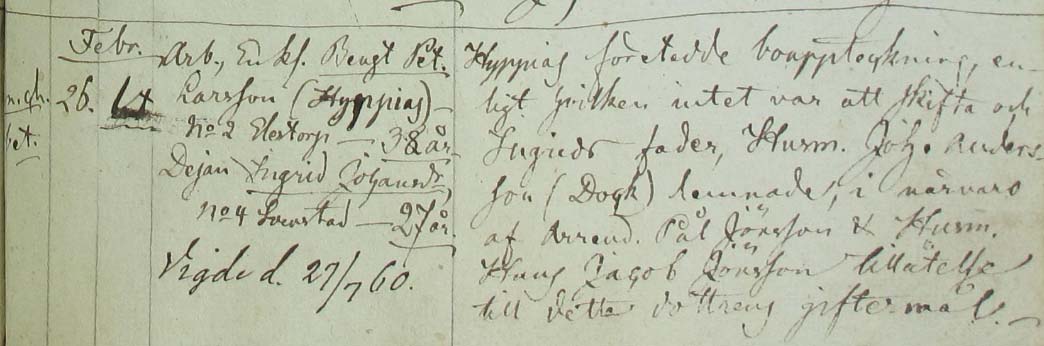 Febr.
n.ch.
bet.
26. 14
Arb., Enkl. Bengt Pet.
Larsson (Hyppias) —
No 2 Elestorp — 38 år
Dejan Ingrid Johansdr
No 4 Svenstad — 27 år.
Vigde d. 27/7 60.
Hyppias företedde bouppteckning, en-
ligt hvilken intet var att skifta och
Ingrids fader, Husm. Joh. Anders-
son (Dock) lemnade, i närvaro
af Arrend. Pål Jönsson & Husm.
Hans Jacob Jönsson tillåtelse
till detta dottrens giftermål. —